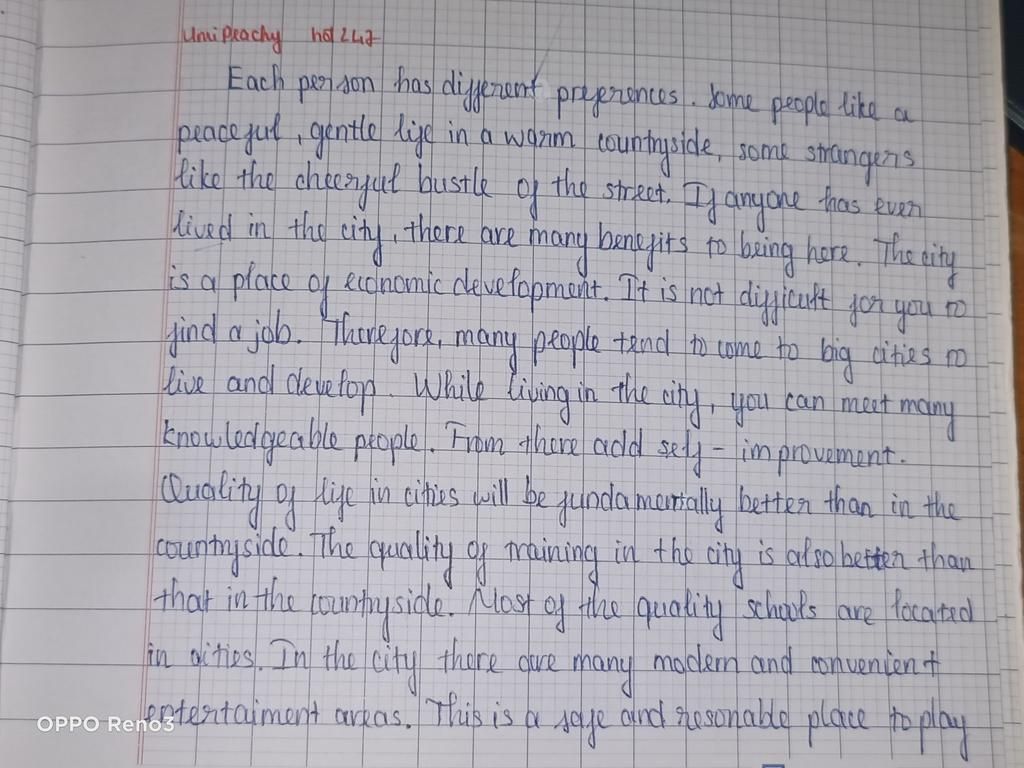 UmiPeachy hoi247
Each person has different preferences. Some people like a
peaceful, gentle life in a warm countryside, some strangers
like the cheerful bustle of the street. If anyone has ever
lived in the city, there are many benefits to being here. The city
is a place of economic development. It is not difficult for you to
find a job. Therefore, many people tend to come to big cities to
live and develop. While living in the city, you can meet many
knowledgeable people. From there add self - improvement.
Quality of life in cities will be fundamentally better than in the
countryside. The quality of training in the city is also better than
that in the countryside. Most of the quality schools are located
in cities. In the city there are many modern and convenient
entertaiment areas. This is a safe and resonable place to play
OPPO Reno3